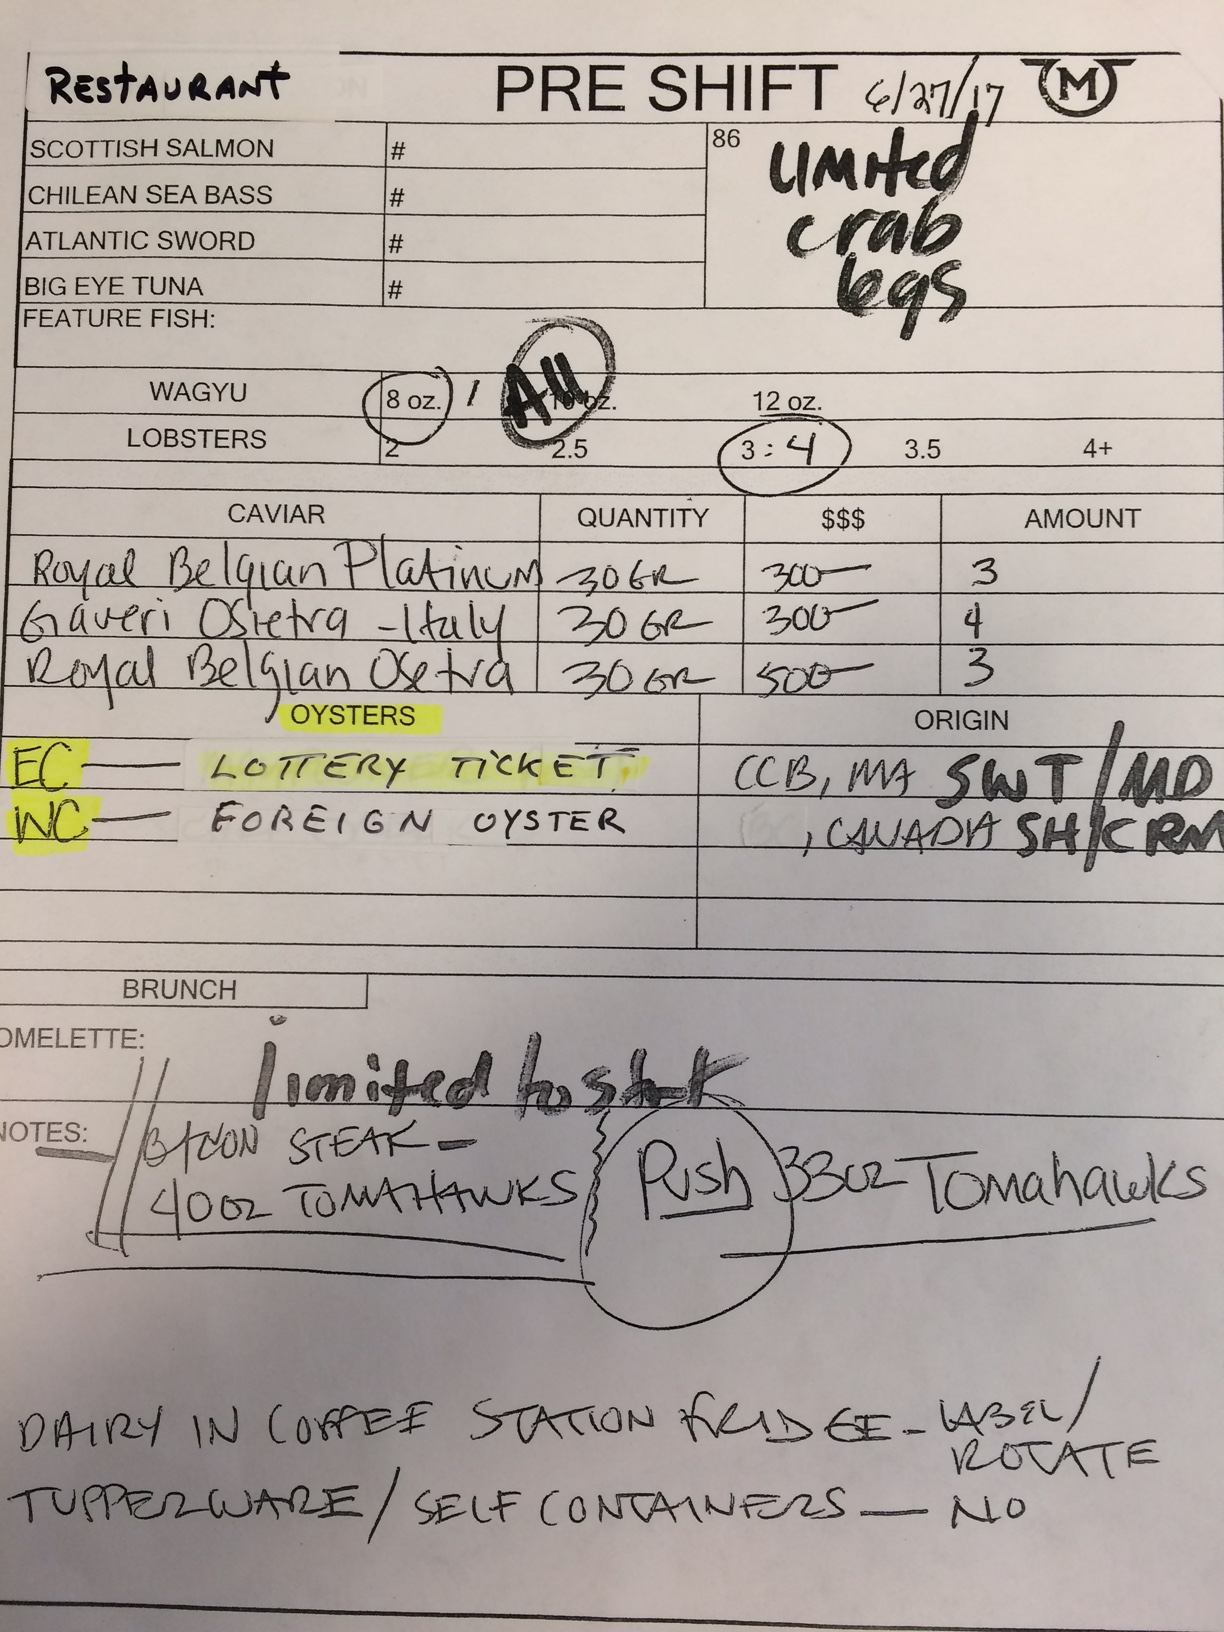 RESTAURANT PRE SHIFT 6/27/17 M
SCOTTISH SALMON # 86 LIMITED
CHILEAN SEA BASS # crab
ATLANTIC SWORD # legs
BIG EYE TUNA #
FEATURE FISH:
WAGYU 8 oz. / All oz. 12 oz.
LOBSTERS 2 2.5 3 : 4 3.5 4+
CAVIAR QUANTITY $$$ AMOUNT
Royal Belgian Platinum 30 GR 300— 3
Gaveri Osietra - Italy 30 GR 300— 4
Royal Belgian Osetra 30 GR 500— 3
OYSTERS ORIGIN
EC — LOTTERY TICKET CCB, MA SWT/MD
WC — FOREIGN OYSTER , CANADA SH/CRM
BRUNCH
OMELETTE:
limited to start
NOTES: BACON STEAK -
40oz TOMAHAWKS Push 33oz Tomahawks
DAIRY IN COFFEE STATION FRIDGE - LABEL/
ROTATE
TUPPERWARE / SELF CONTAINERS — NO